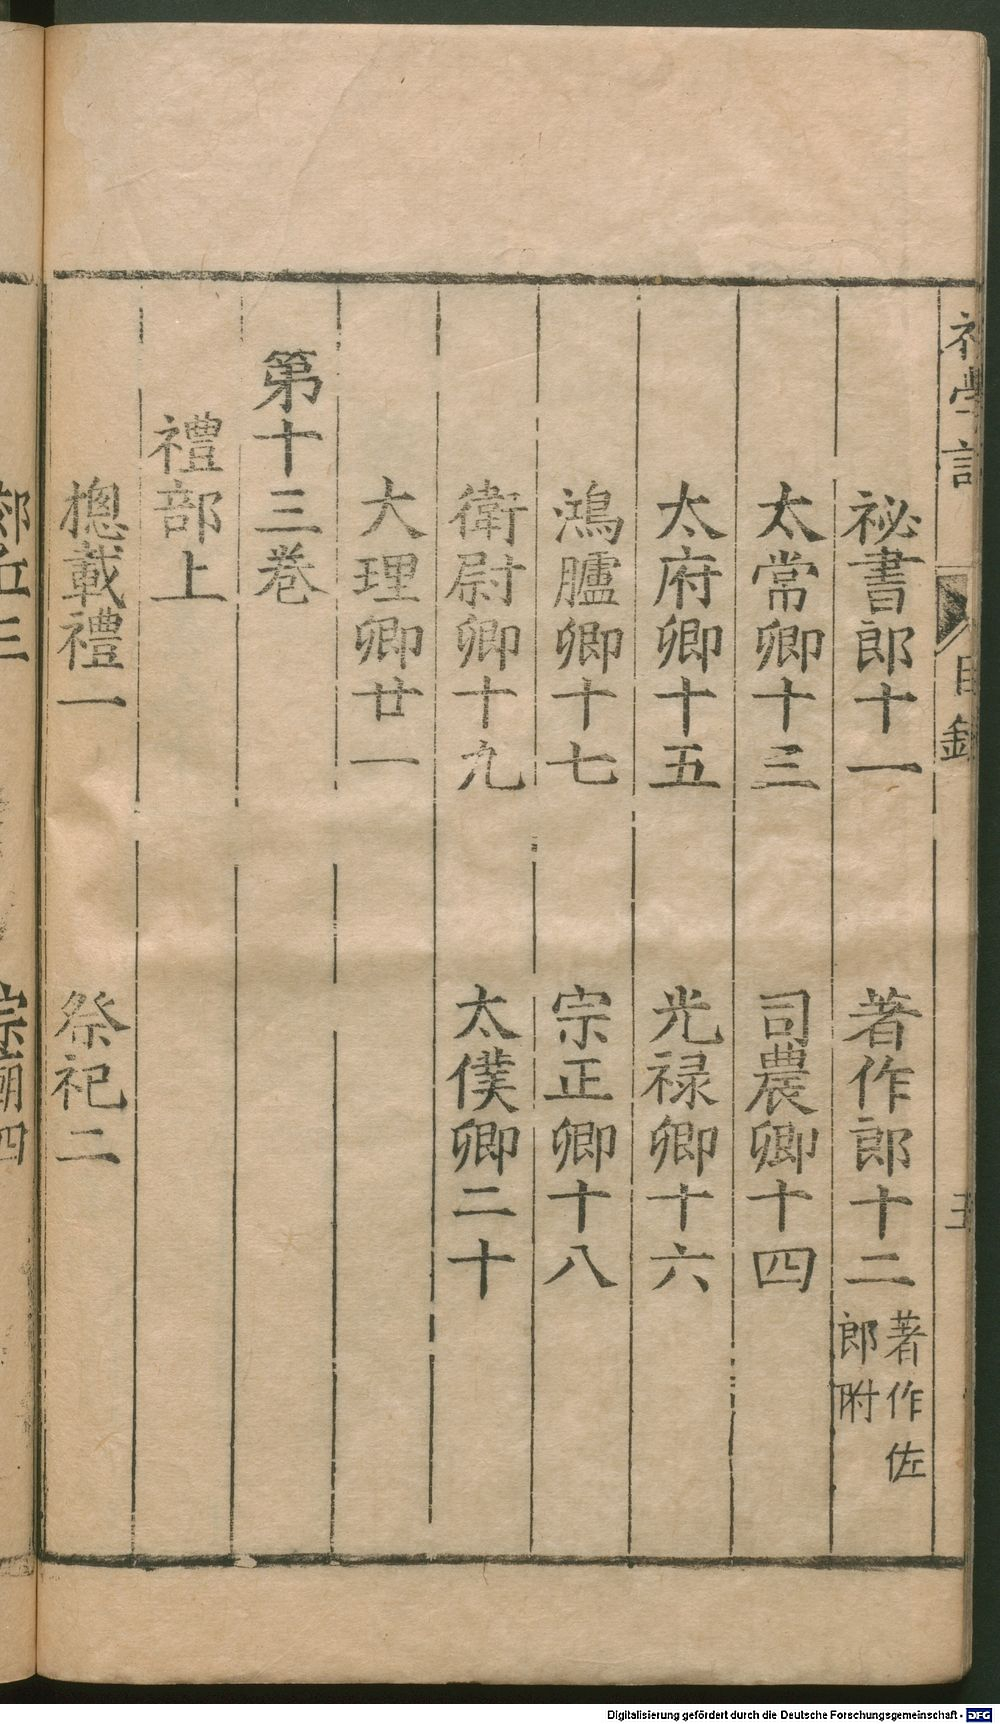 初學記
目録
五
祕書郎十一 著作郎十二 著作佐郎附
太常卿十三 司農卿十四
太府卿十五 光禄卿十六
鴻臚卿十七 宗正卿十八
衛尉卿十九 太僕卿二十
大理卿廿一
第十三卷
禮部上
摠載禮一 祭祀二
郊丘三 宗廟四
Digitalisierung gefördert durch die Deutsche Forschungsgemeinschaft - DFG